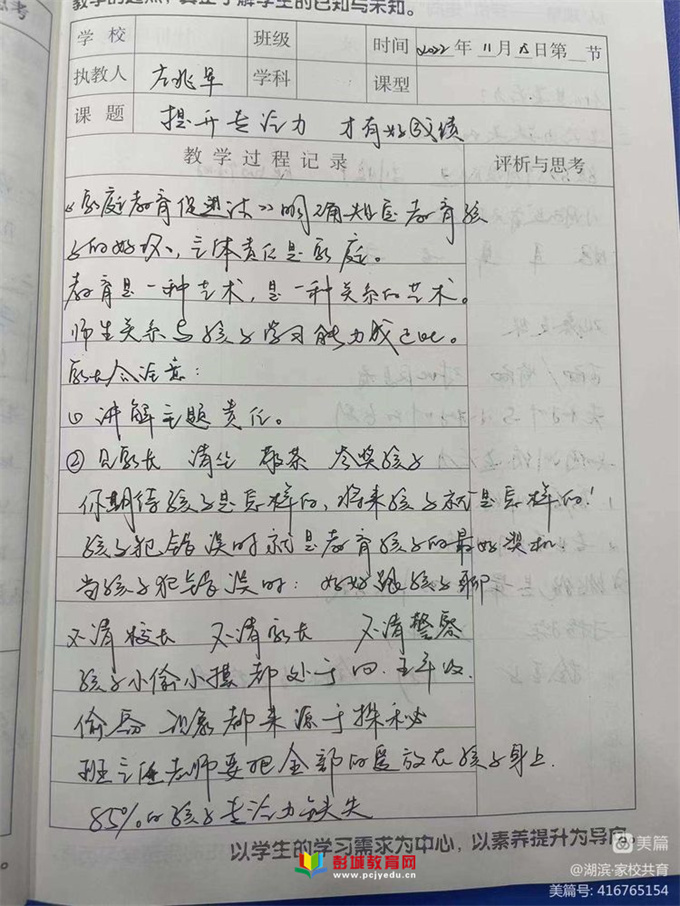 教学的起点,真正了解学生的已知与未知。
学 校 班级 时间 2022年 11月 8日第 节
执教人 左兆军 学科 课型
课 题 提升专注力 才有好成绩
教 学 过 程 记 录 评析与思考
《家庭教育促进法》明确规定教育孩
子的好坏、主体责任是家庭。
教育是一种艺术,是一种关系的艺术。
师生关系与孩子学习能力成正比。
家长会注意:
① 讲解主题责任。
② 见家长 请坐 敬茶 夸奖孩子
你期待孩子是怎样的,将来孩子就是怎样的!
孩子犯错误时就是教育孩子的最好契机.
当孩子犯错误时: 好好跟孩子聊
不请校长 不请家长 不请警察
孩子小偷小摸都处于四.五年级.
偷 现象都来源于探秘
班主任老师要把全部的爱放在孩子身上.
85%的孩子专注力缺失
以学生的学习需求为中心,以素养提升为导向。
彭城教育网
www.pcjyedu.cn
美篇
@湖滨·家校共育
美篇号: 416765154